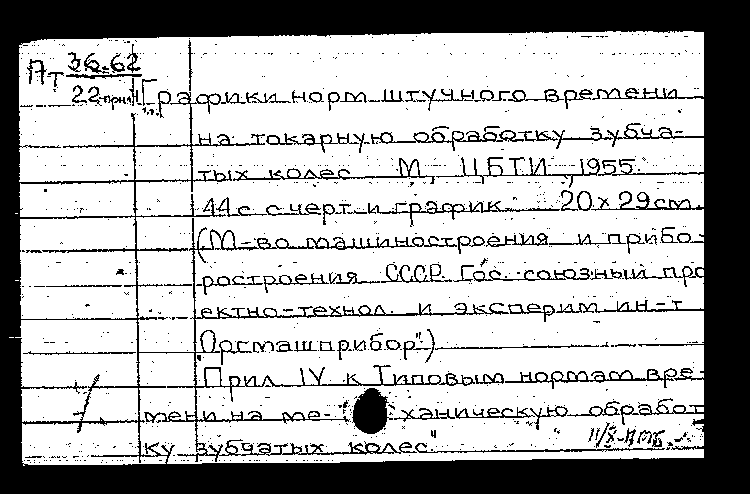 Пт 36.62
22 прил Графики норм штучного времени
на токарную обработку зубча-
тых колес М., ЦБТИ, 1955.
44 с с черт и график. 20 х 29 см.
(М-во машиностроения и прибо-
ростроения СССР. Гос. союзный про
ектно-технол. и эксперим ин-т
"Оргмашприбор".)
"Прил. IV к Типовым нормам вре-
мени на ме- ханическую обработ
ку зубчатых колес."